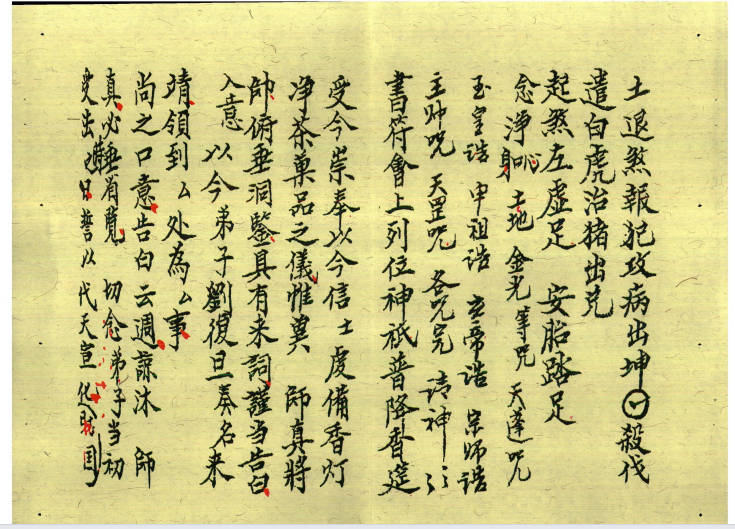 土退煞報犯攻病出坤 殺伐
遣白虎治猪出尅
起煞左虛足 安胎踏足
念淨 身 土地 金光 等咒 天蓬咒
玉皇誥 申祖誥 玄帝誥 宗師誥
主帅咒 天罡咒 各咒完 請神
書符會上列位神祇普降香筵
受今崇奉以今信士虔備香灯
净茶菓品之儀惟冀 師真將
帥俯垂洞鑒具有来詞謹当告白
入意 以今弟子劉復旦奏名来
靖領到厶处為厶事
尚之口意告白云週諒沐 師
真必垂省覽 切念弟子当初
受出 日誓以代天宣化 国